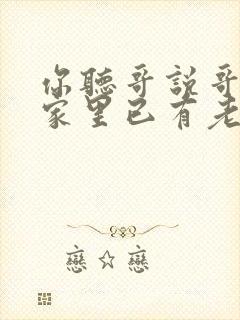 你聽哥說哥
家里已有老
戀☆戀